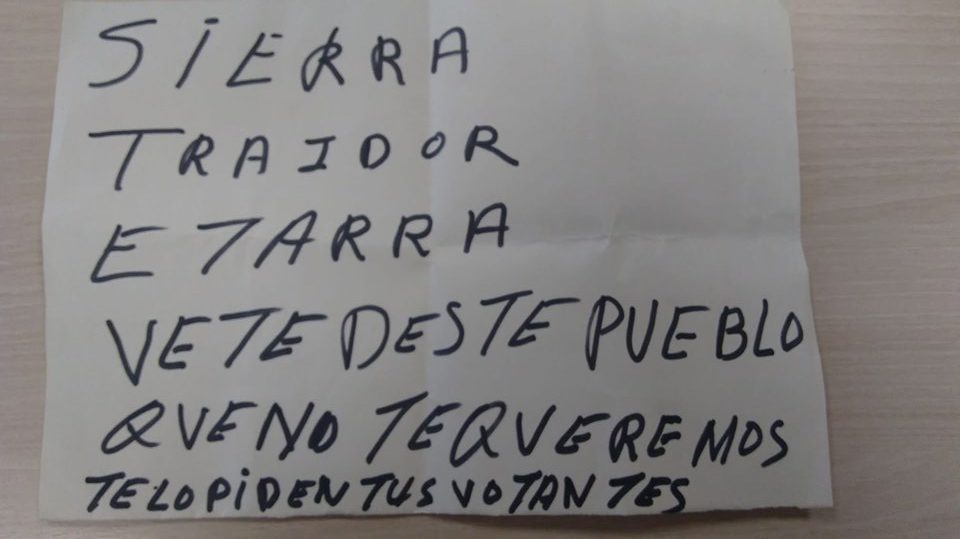 SiERRA
TRAIDOR
ETARRA
VETE DESTE PUEBLO
QUE NO TE QUEREMOS
TE LO PiDEN TUS VOTANTES